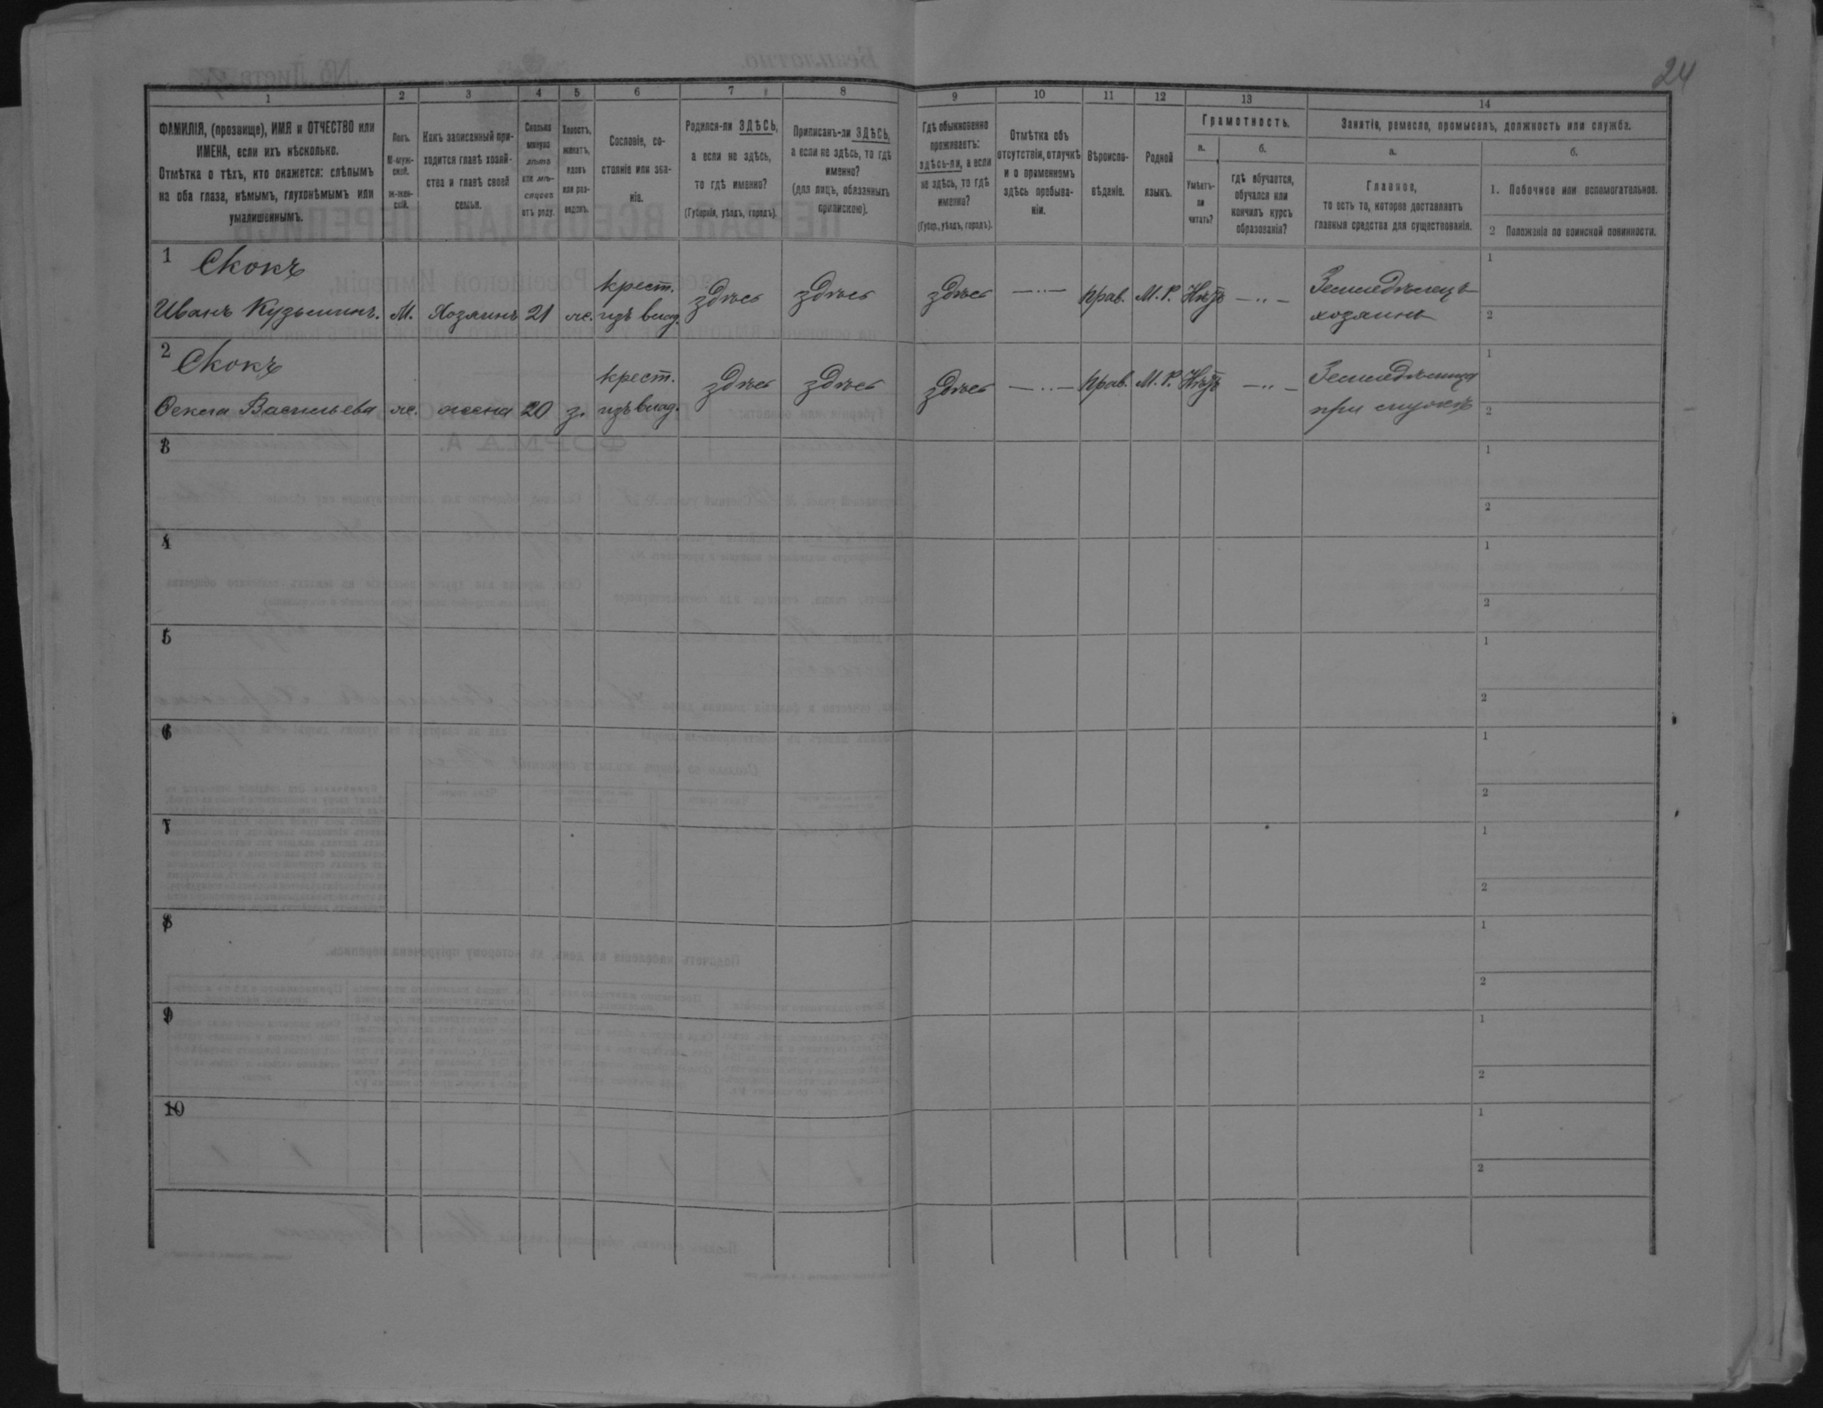 24
1
2
3
4
5
6
7
8
9
10
11
12
13
14
ФАМИЛІЯ, (прозвище), ИМЯ и ОТЧЕСТВО или
ИМЕНА, если ихъ нѣсколько.
Отмѣтка о тѣхъ, кто окажется: слѣпымъ
на оба глаза, нѣмымъ, глухонѣмымъ или
умалишеннымъ.
Полъ.
М-муж-
ской.
Ж-жен-
скій.
Какъ записанный при-
ходится главѣ хозяй-
ства и главѣ своей
семьи.
Сколько
минуло
лѣтъ
или мѣ-
сяцевъ
отъ роду.
Холостъ,
женатъ,
вдовъ
или раз-
веденъ.
Сословіе, со-
стояніе или зва-
ніе.
Родился-ли ЗДѢСЬ,
а если не здѣсь,
то гдѣ именно?
(Губернія, уѣздъ, городъ).
Приписанъ-ли ЗДѢСЬ,
а если не здѣсь, то гдѣ
именно?
(для лицъ, обязанныхъ
припискою).
Гдѣ обыкновенно
проживаетъ:
здѣсь-ли, а если
не здѣсь, то гдѣ
именно?
(Губер., уѣздъ, городъ).
Отмѣтка объ
отсутствіи, отлучкѣ
и о временномъ
здѣсь пребыва-
ніи.
Вѣроиспо-
вѣданіе.
Родной
языкъ.
Грамотность.
а.
Умѣетъ-
ли
читать?
б.
гдѣ обучается,
обучался или
кончилъ курсъ
образованія?
Занятіе, ремесло, промыселъ, должность или служба.
а.
Главное,
то есть то, которое доставляетъ
главныя средства для существованія.
б.
1. Побочное или вспомогательное.
2 Положеніе по воинской повинности.
1 Скокъ
Иванъ Кузьминъ. М. Хозяинъ 21 ж. крест. изъ влад. здѣсь здѣсь здѣсь —··— прав. М. Р. Нѣтъ —··— Земледѣлецъ
хозяинъ
1
2
2 Скокъ
Васильева ж. жена 20 з. крест. изъ влад. здѣсь здѣсь здѣсь —··— прав. М. Р. Нѣтъ —··—
при
1
2
3
1
2
4
1
2
5
1
2
6
1
2
7
1
2
8
1
2
9
1
2
10
1
2